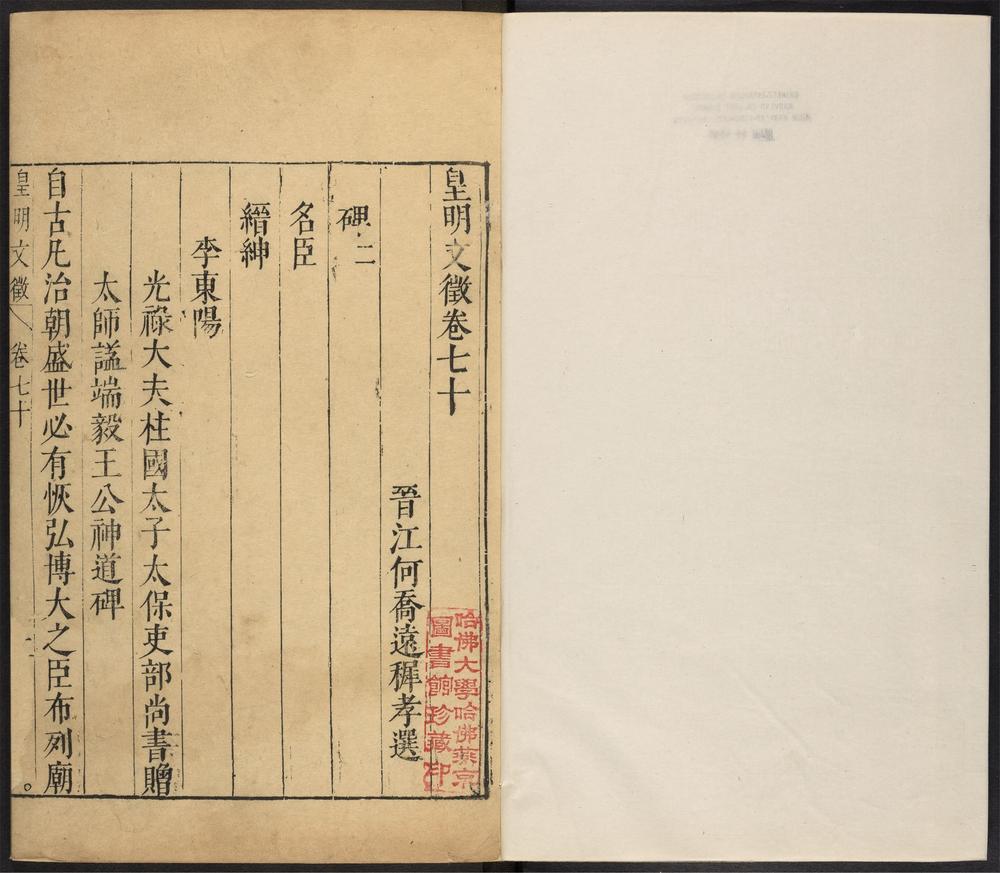 皇明文徵卷七十
晉江何喬遠穉孝選
碑二
名臣
縉紳
李東陽
光祿大夫柱國太子太保吏部尚書贈
太師謚端毅王公神道碑
自古凡治朝盛世必有恢弘博大之臣布列廟
皇明文徵 卷七十 一
哈佛大學哈佛燕京
圖書館珍藏印